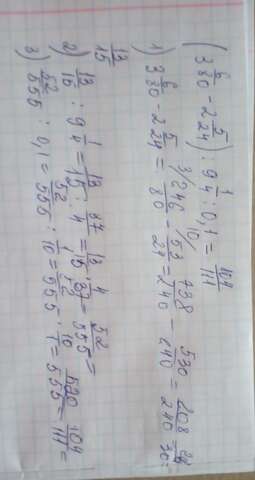 (3 6/80 - 2 5/24) : 9 1/4 : 0,1 = 104/111
1) 3 6/80 - 2 5/24 = 3/ 246/80 - 10/ 53/24 = 738/240 - 530/240 = 208/240 = 26/30 =
13/15
2) 13/15 : 9 1/4 = 13/15 : 37/4 = 13/15 · 4/37 = 52/555
3) 52/555 : 0,1 = 52/555 : 1/10 = 52/555 · 10/1 = 520/555 = 104/111